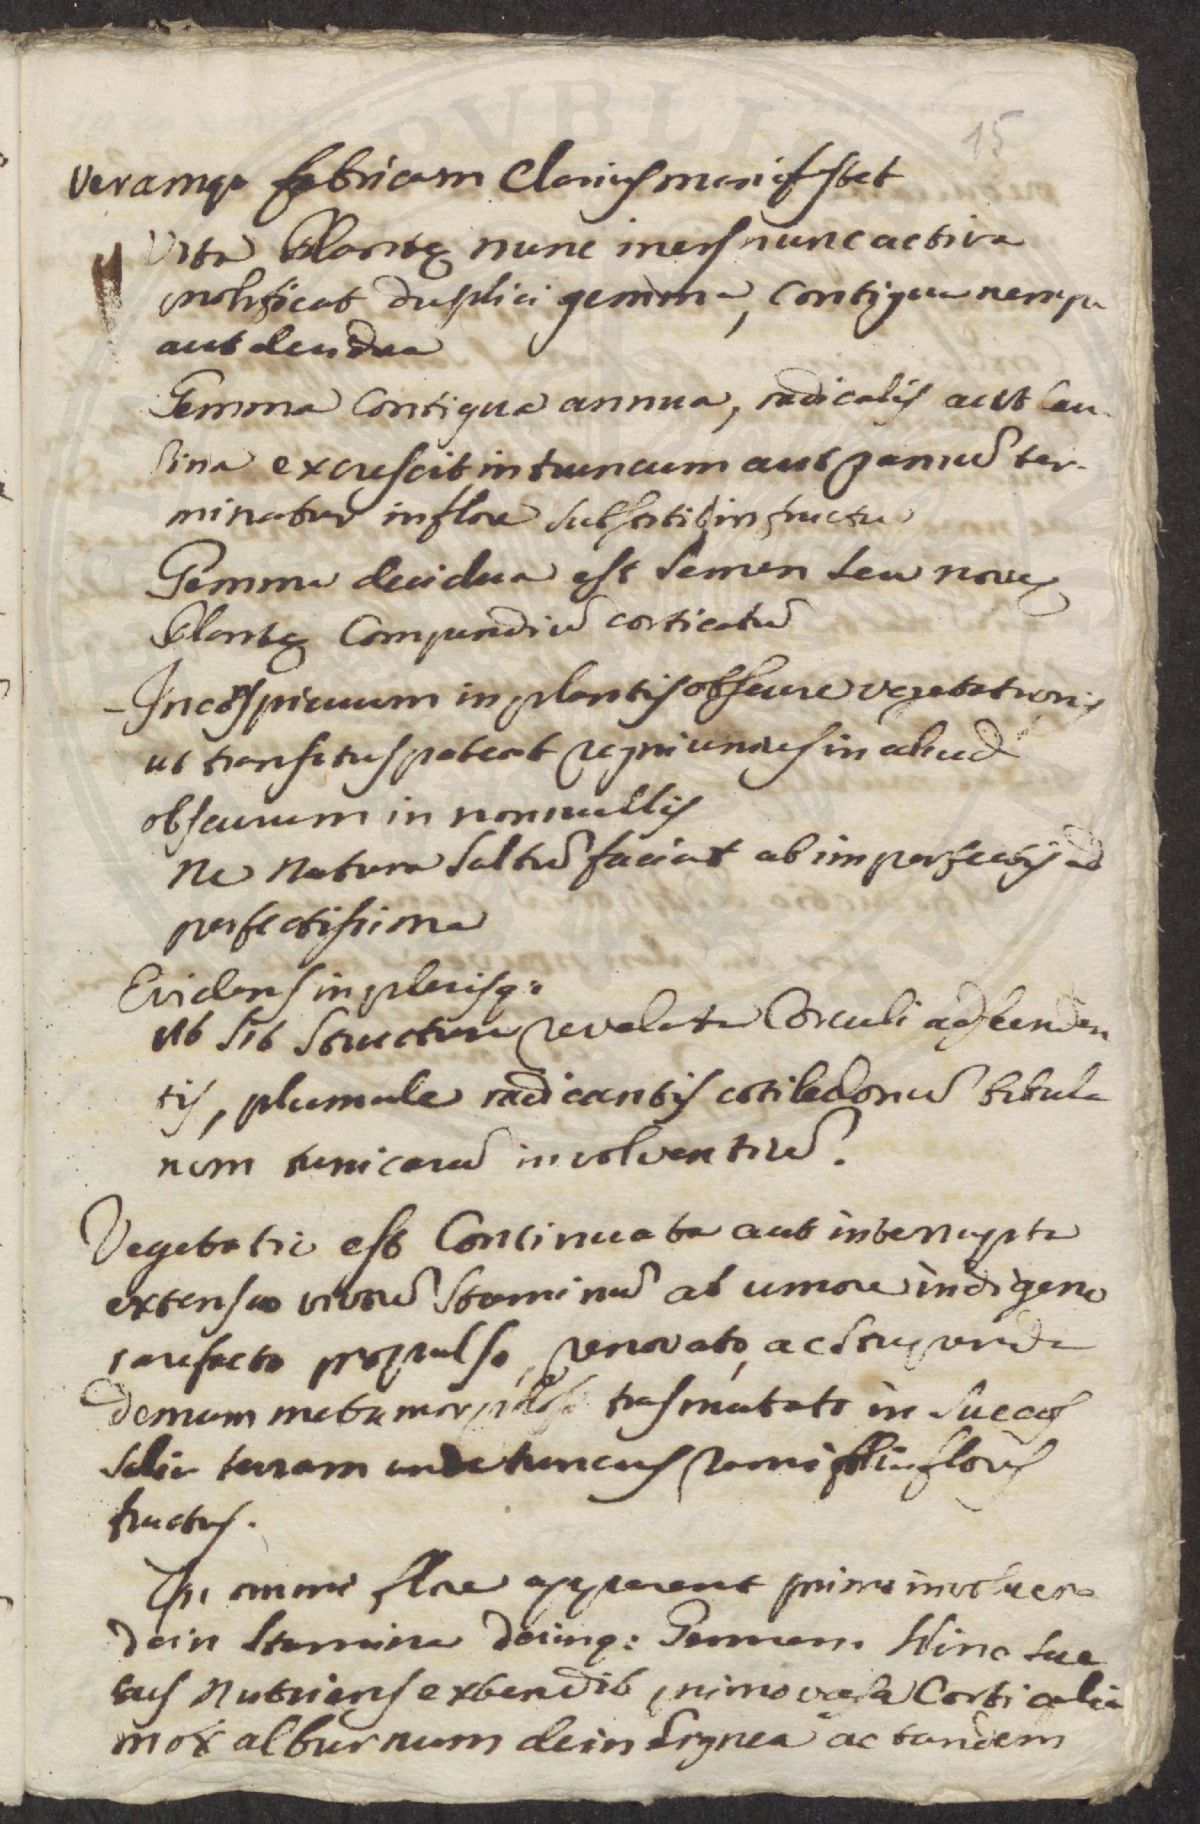 15
veramq. fabricam Clarius manifestet
Vita Plantę nunc iners nunc activa
prolificat duplici gemma, Contigua nempe
aut decidua
Gemma Contigua annua, radicalis aut Cau-
lina excrescit in truncum aut ramũ ter-
minatur in flore subsistit in fructu
Gemma decidua est Semen seu novę
Plantę Compendiũ corticatũ
- Inconspicuum in plantis obscure vegetationis
ut transitus pateat regni unius in aliud
obscurum in nonnullis
Ne Natura Saltũ faciat ab imperfectis ad
perfectissima
Evidens in plerisq:
ut sit Structura revelata Corculi adscenden
tis, plumule radicantis cotiledonũ
num tunicarũ involventiũ.
Vegetatio est Continuata aut interrupta
extensio vivorũ Staminũ ab umore indigeno
rarefacto propulso, renovato, ac stupenda
demum metamorphosi trasmutato in Succos
terram unde truncus rami folia flores
fructus.
In omni flore apparent primo involucra
dein Stamina deinq: Germen. Hinc suc
cus Nutriens extendit primo vasa Corticalia
mox alburnum dein Lignea ac tandem